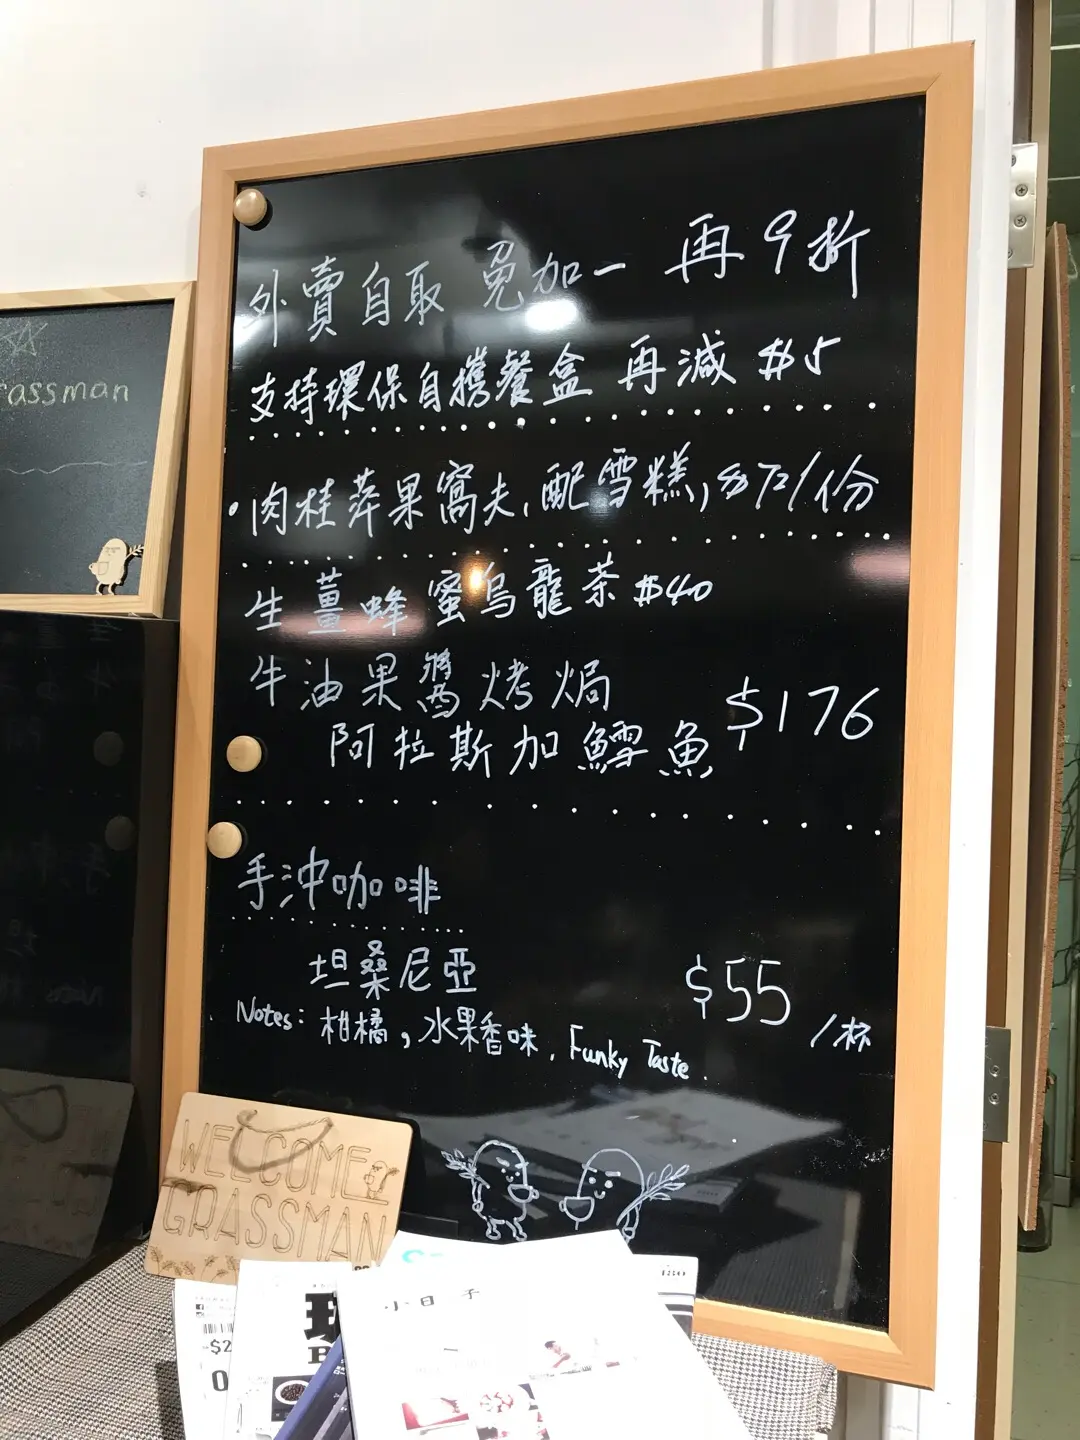 外賣自取 免加一 再9折
支持環保自攜餐盒 再減 $5
·肉桂苹果窩夫,配雪糕,$72/份
生薑蜂蜜烏龍茶 $40
牛油果醬烤焗
阿拉斯加鱈魚 $176
手沖咖啡
坦桑尼亞 $55/杯
Notes: 柑橘,水果香味, Funky Taste.
assman
WELCOME
GRASSMAN
小日子
$2